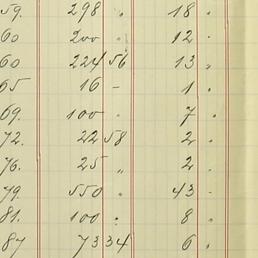 59. 298 „ 18 „
60 200 „ 12 -
60 224 56 13 „
65 16 - 1 „
69. 100 „ 7 „
72. 22 58 2 „
76. 25 „ 2 „
79. 550 „ 43 -
81. 100 „ 8 „
87 73 34 6 „